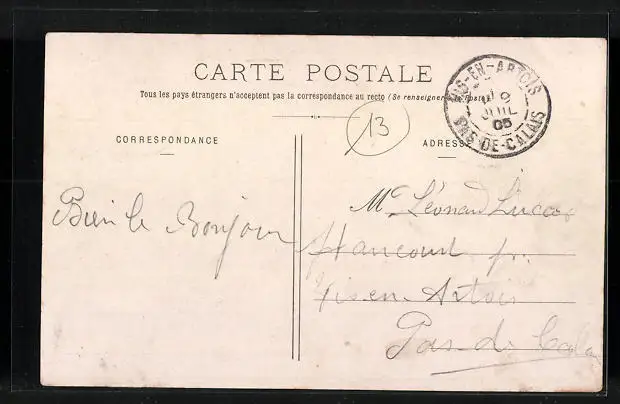 CARTE POSTALE
Tous les pays étrangers n'acceptent pas la correspondance au recto (Se renseigner à la poste)
VIS-EN-ARTOIS
9
JUIL
05
PAS-DE-CALAIS
13
CORRESPONDANCE
ADRESSE
Bien le Bonjour
Mr Léonard Lucas
Haucourt par
Vis en Artois
Pas de Calais